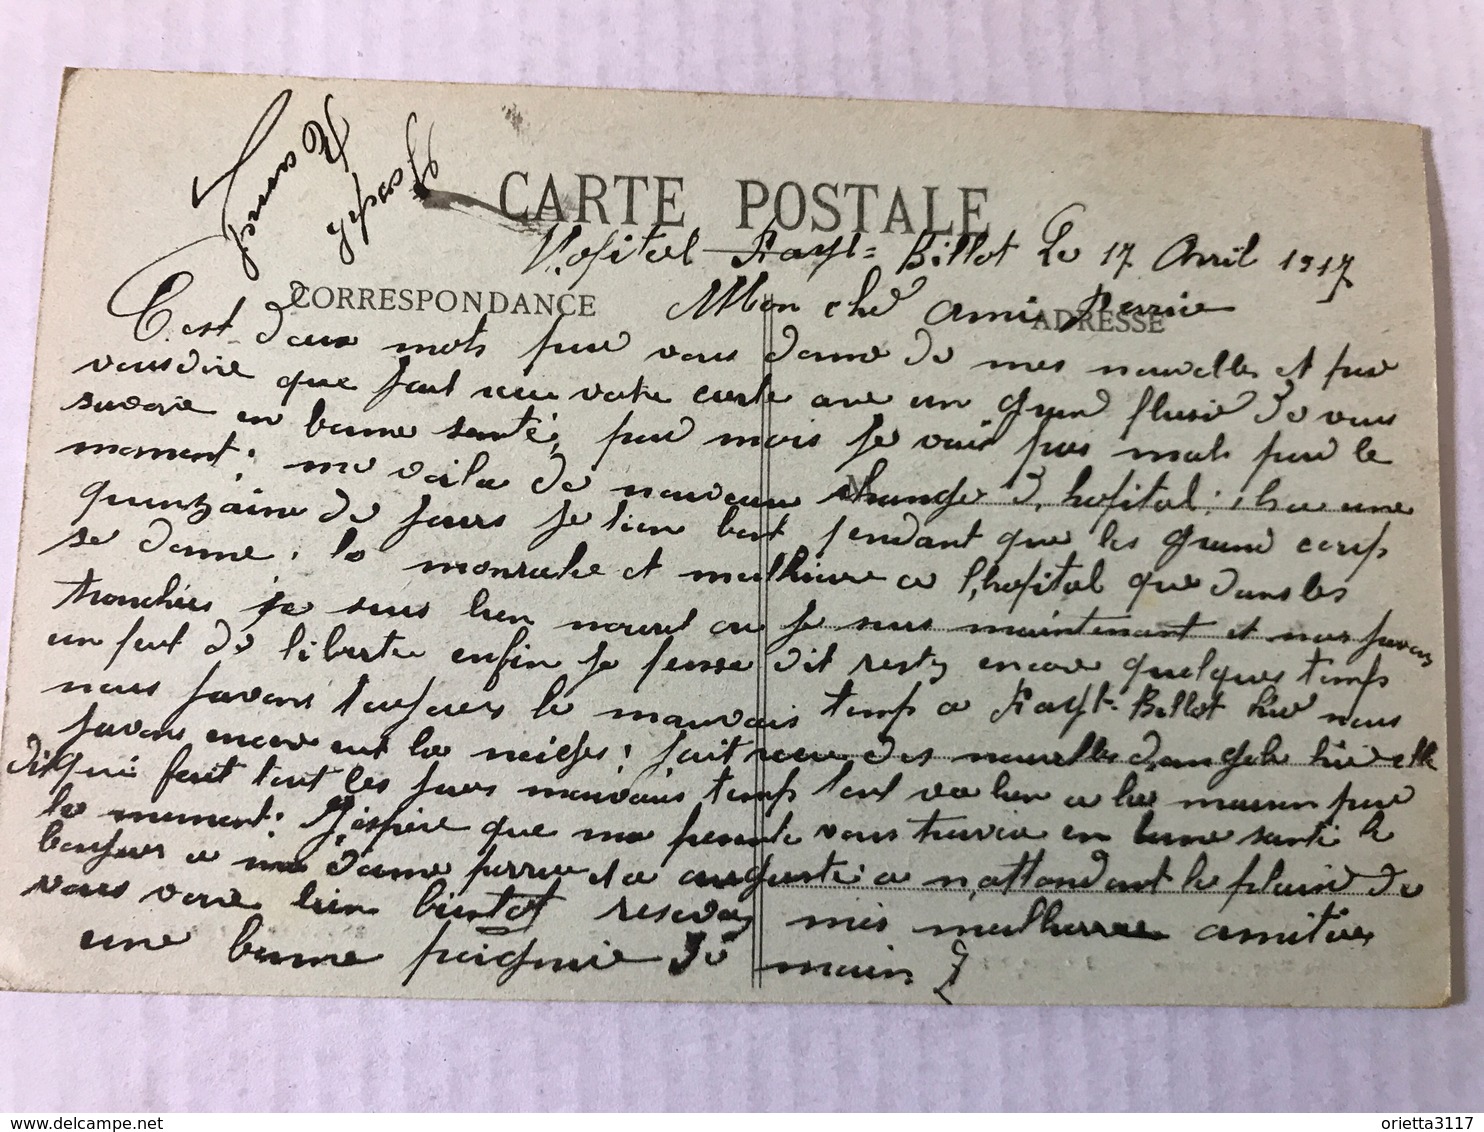 CARTE POSTALE
Hopital Fayl-Billot Le 17 Avril 1917
CORRESPONDANCE
ADRESSE
Mon cher ami Perrie
C'est deux mots pour vous donné de mes nouvelles et pour
vous dire que jait recu votre carte ave un grand plusir de vous
savoire en bonne santé, pour mois je vais pas mals pour le
moment; me voila de nouveau change d'hopital; chaque une
quinzaine de jours je tien bont pendant que les grand corp
se donne. la monrale et meillieure a l'hopital que dans les
tranchées je suis bien nourit ou je suis maintenant et nous javons
un port de liberte enfin je pense dit restez encore quelques temp
nous javons toujours le mauvais temp a Fayl-Billot hier nous
javons encore eut la neiges; jait recu des nouvelles d'angele hier elle
dit qui fait tout les jours mauvais temp tout va bien a la maison pour
le moment; J'espère que ma presente vous trouvera en bonne santé le
bonjour a ma dame perrie et a auguste a n'attendant le plaisir de
vous voire bien bientot recevez mes meilheure amitiées
une bonne poignie de main
Joseph